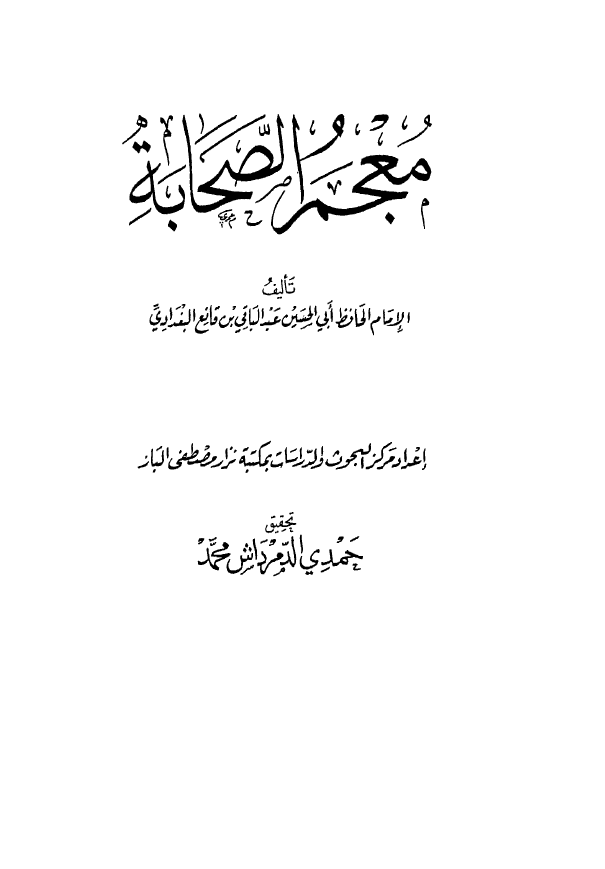 مُعْجَمُ الصَّحَابَةِ
تَأليفُ
الإمَام الحَافظ أَبي الحسَيْن عَبْد البَاقي بن قانِع البَغْدَاديِّ
إعْداد مَركز البحوث والدّراسَات بمكتبة نزار مصْطفى الباز
تحقيق
حَمْدِي الدّمْردَاش محمَّدْ